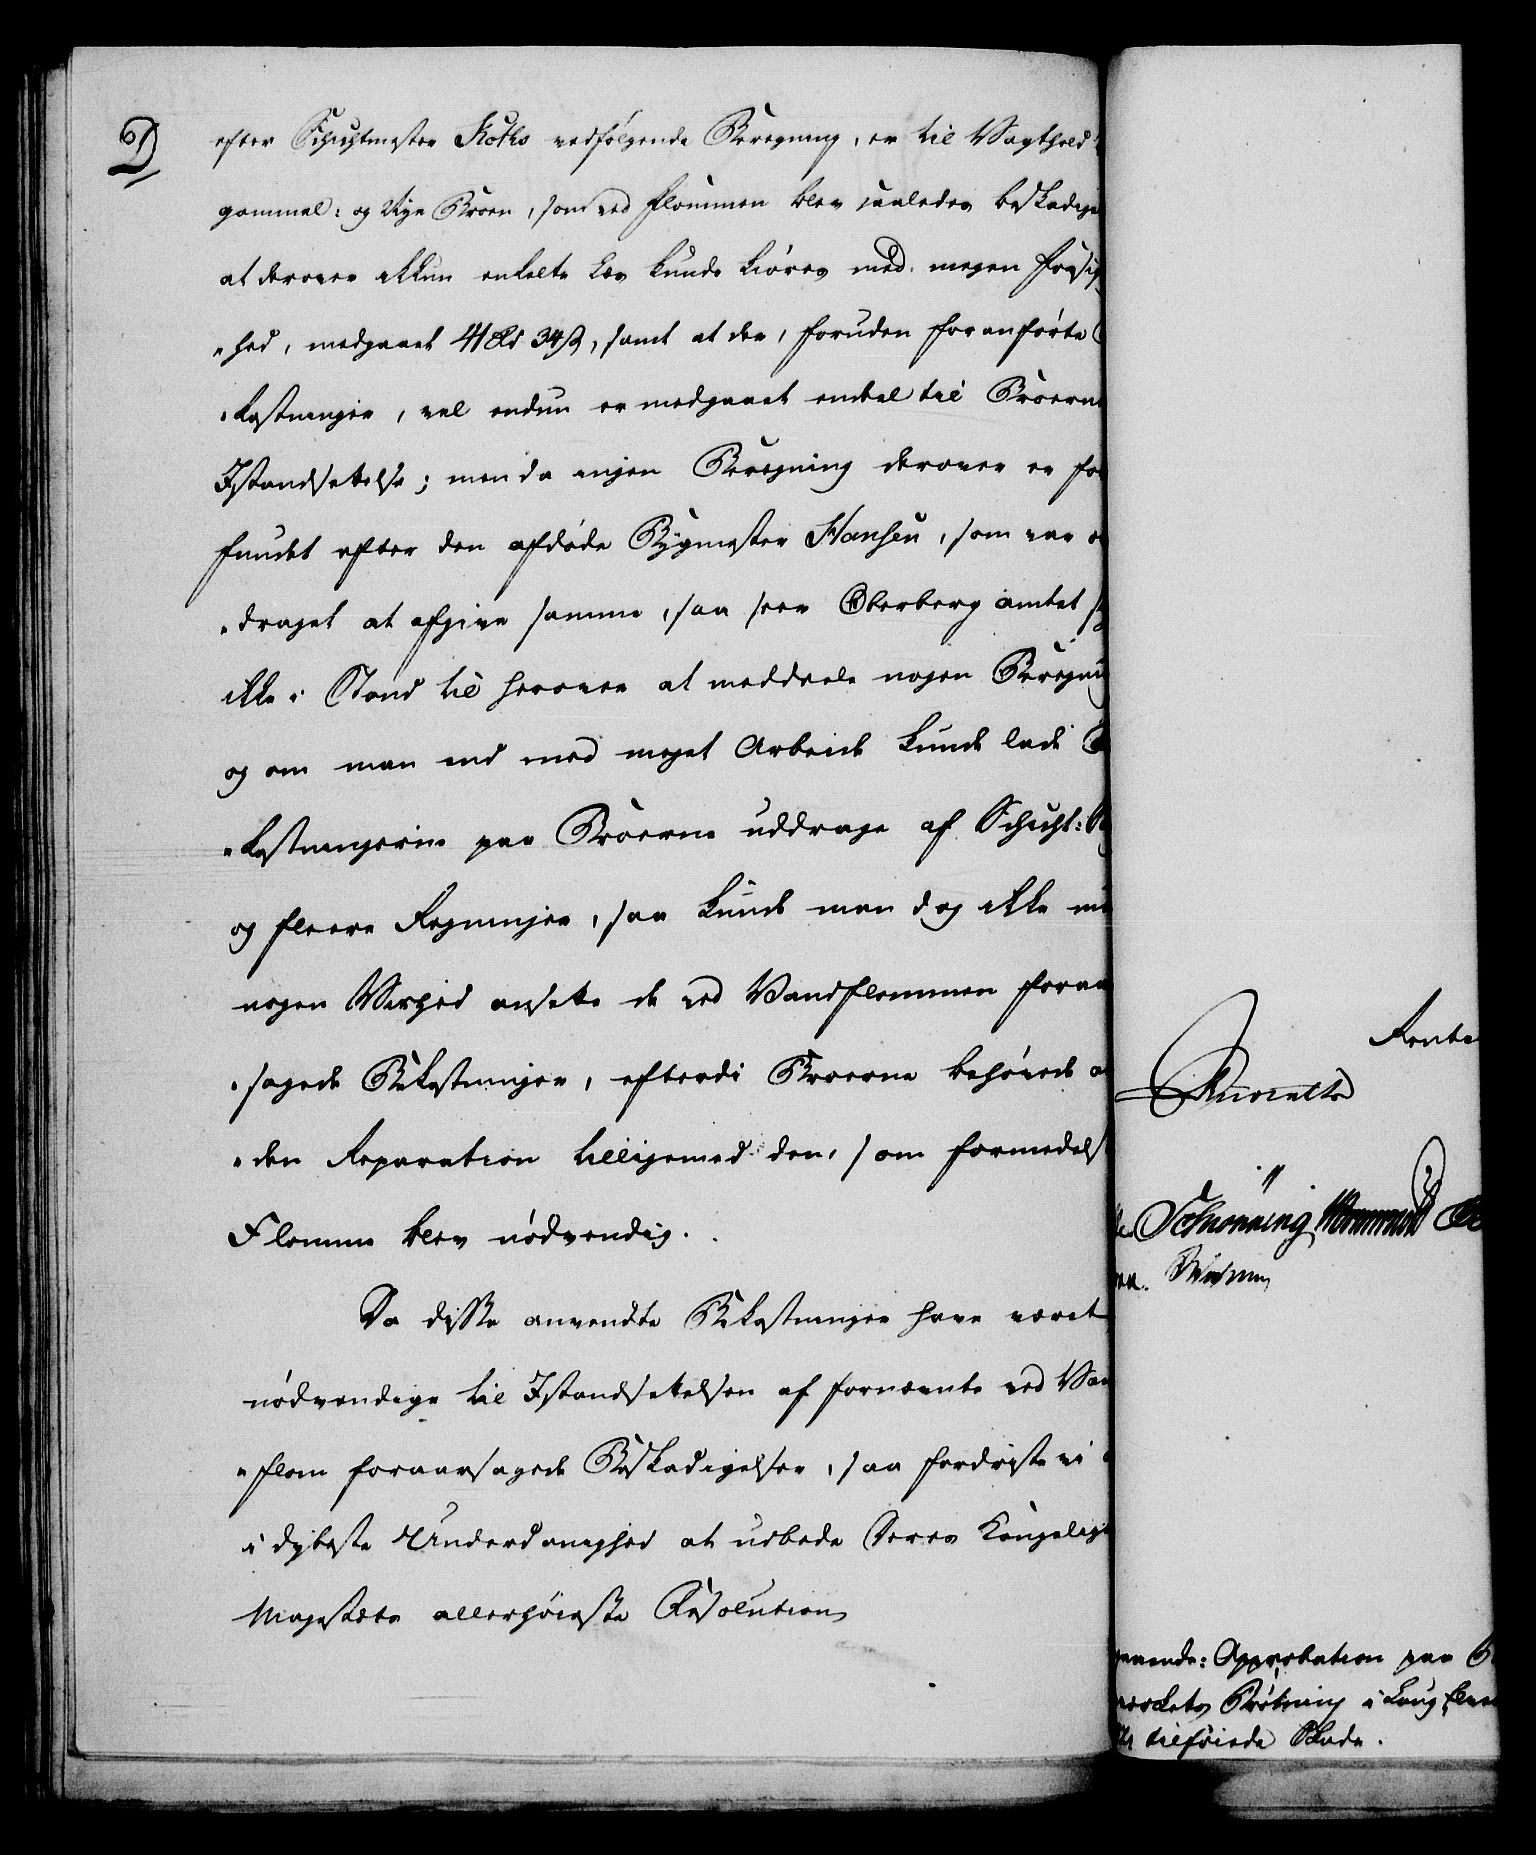 D
efter Schichtmester Koths vedfølgende Beregning, er til Vagthold
gammel: og Nye Broen, som ved Flommen blev saaledes beskadige
at derover ikkun enkelte Læs kunde kiøres med megen forsig
"hed, medgaaet 41 Rd 34 ß, samt at der, foruden foranførte
"kostninger, vel endnu er medgaaet endeel til Broerne
Istandsættelse; men da ingen Beregning derover er fore
fundet efter den afdøde Bygmester Hansen, som var
"draget at afgive samme, saa seer Oberberg amtet
ikke i Stand til herover at meddeele nogen Beregni
og om man end med meget Arbeide kunde lade
"kostningerne paa Broerne uddrage af Schicht:
og fleere Regninger, saa kunde man dog ikke
nogen Vished ansætte de ved Vandflommen foraar
"sagede Bekostninger, efterdi Broerne behøvede
"den Reparation tilligemed den, som formedelst
Flomme blev nødvendig.
Da disse anvendte Bekostninger have været
nødvendige til Istandsættelsen af fornævnte ved Van
"flom foraarsagede Beskadigelser, saa fordriste vi
i dybeste Underdanighed at udbede Deres Kongelige
Majestæts allerhøieste Resolution
Rente
Schiønning
Approbation paa
værkets i Kongsber
tilføiede Skade.